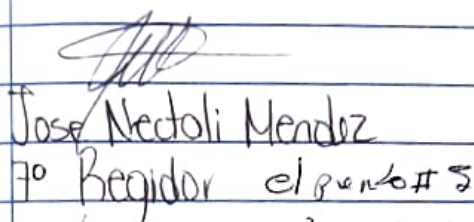 Jose Nectoli Mendez
7º Regidor el punto #